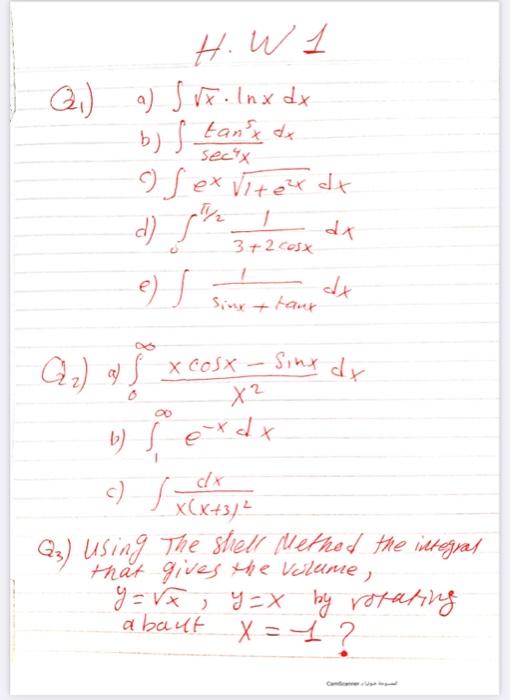 H.W 1
Q1) a) ∫ √x . lnx dx
b) ∫ tan⁵x / sec⁴x dx
c) ∫ eˣ √1+e²ˣ dx
d) ∫₀^π/2 1 / 3+2cosx dx
e) ∫ 1 / sinx + tanx dx
Q2) a) ∫₀^∞ x cosx - Sinx / x² dx
b) ∫₁^∞ e⁻ˣ dx
c) ∫ dx / x(x+3)²
Q3) Using The Shell Method the integral
that gives the volume,
y=√x , y=x by rotating
about x=-1 ?
CamScanner